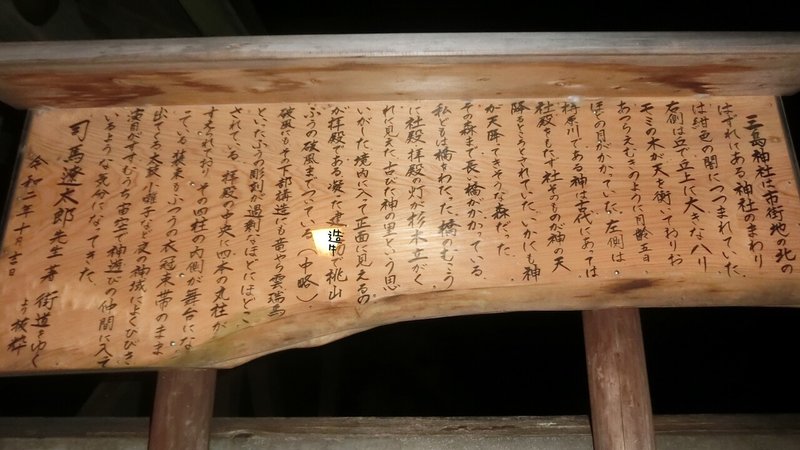 三島神社は市街地の北の
はずれにある神社のまわり
は紺色の闇につつまれていた
右側は丘で丘上に大きなハリ
モミの木が天を衝いておりお
あつらえむきのように月齢五日
ほどの月がかかっていた左側は
梼原川である神は古代にあっては
社殿をもたず社そのものが神の天
降るところとされていたいかにも神
が天降ってきそうな森だった
その森まで長い橋がかかっている
私どもは橋をわたった橋のむこう
に社殿拝殿の灯が杉木立がく
れに見えた古びた神の里という思
いがした境内に入って正面に見えるの
が拝殿である凝った建造物で桃山
ふうの破風までついている（中略）
破風にもその下部構造にも昔やら雲瑞鳥
といったふうの彫刻が過剰なほどにほどこ
されている 拝殿の中央に四本の丸柱が
すえられており その四柱の内側が舞台にな
っている 装束もふつうの衣冠束帯のまま
出てきる太鼓小囃子など夜の神域によくひびき
演目がすすむうち宙空で神遊びの仲間に入って
いるような気分になってきた
司馬遼太郎先生著 街道をゆく
より抜粋
令和二年十月吉日